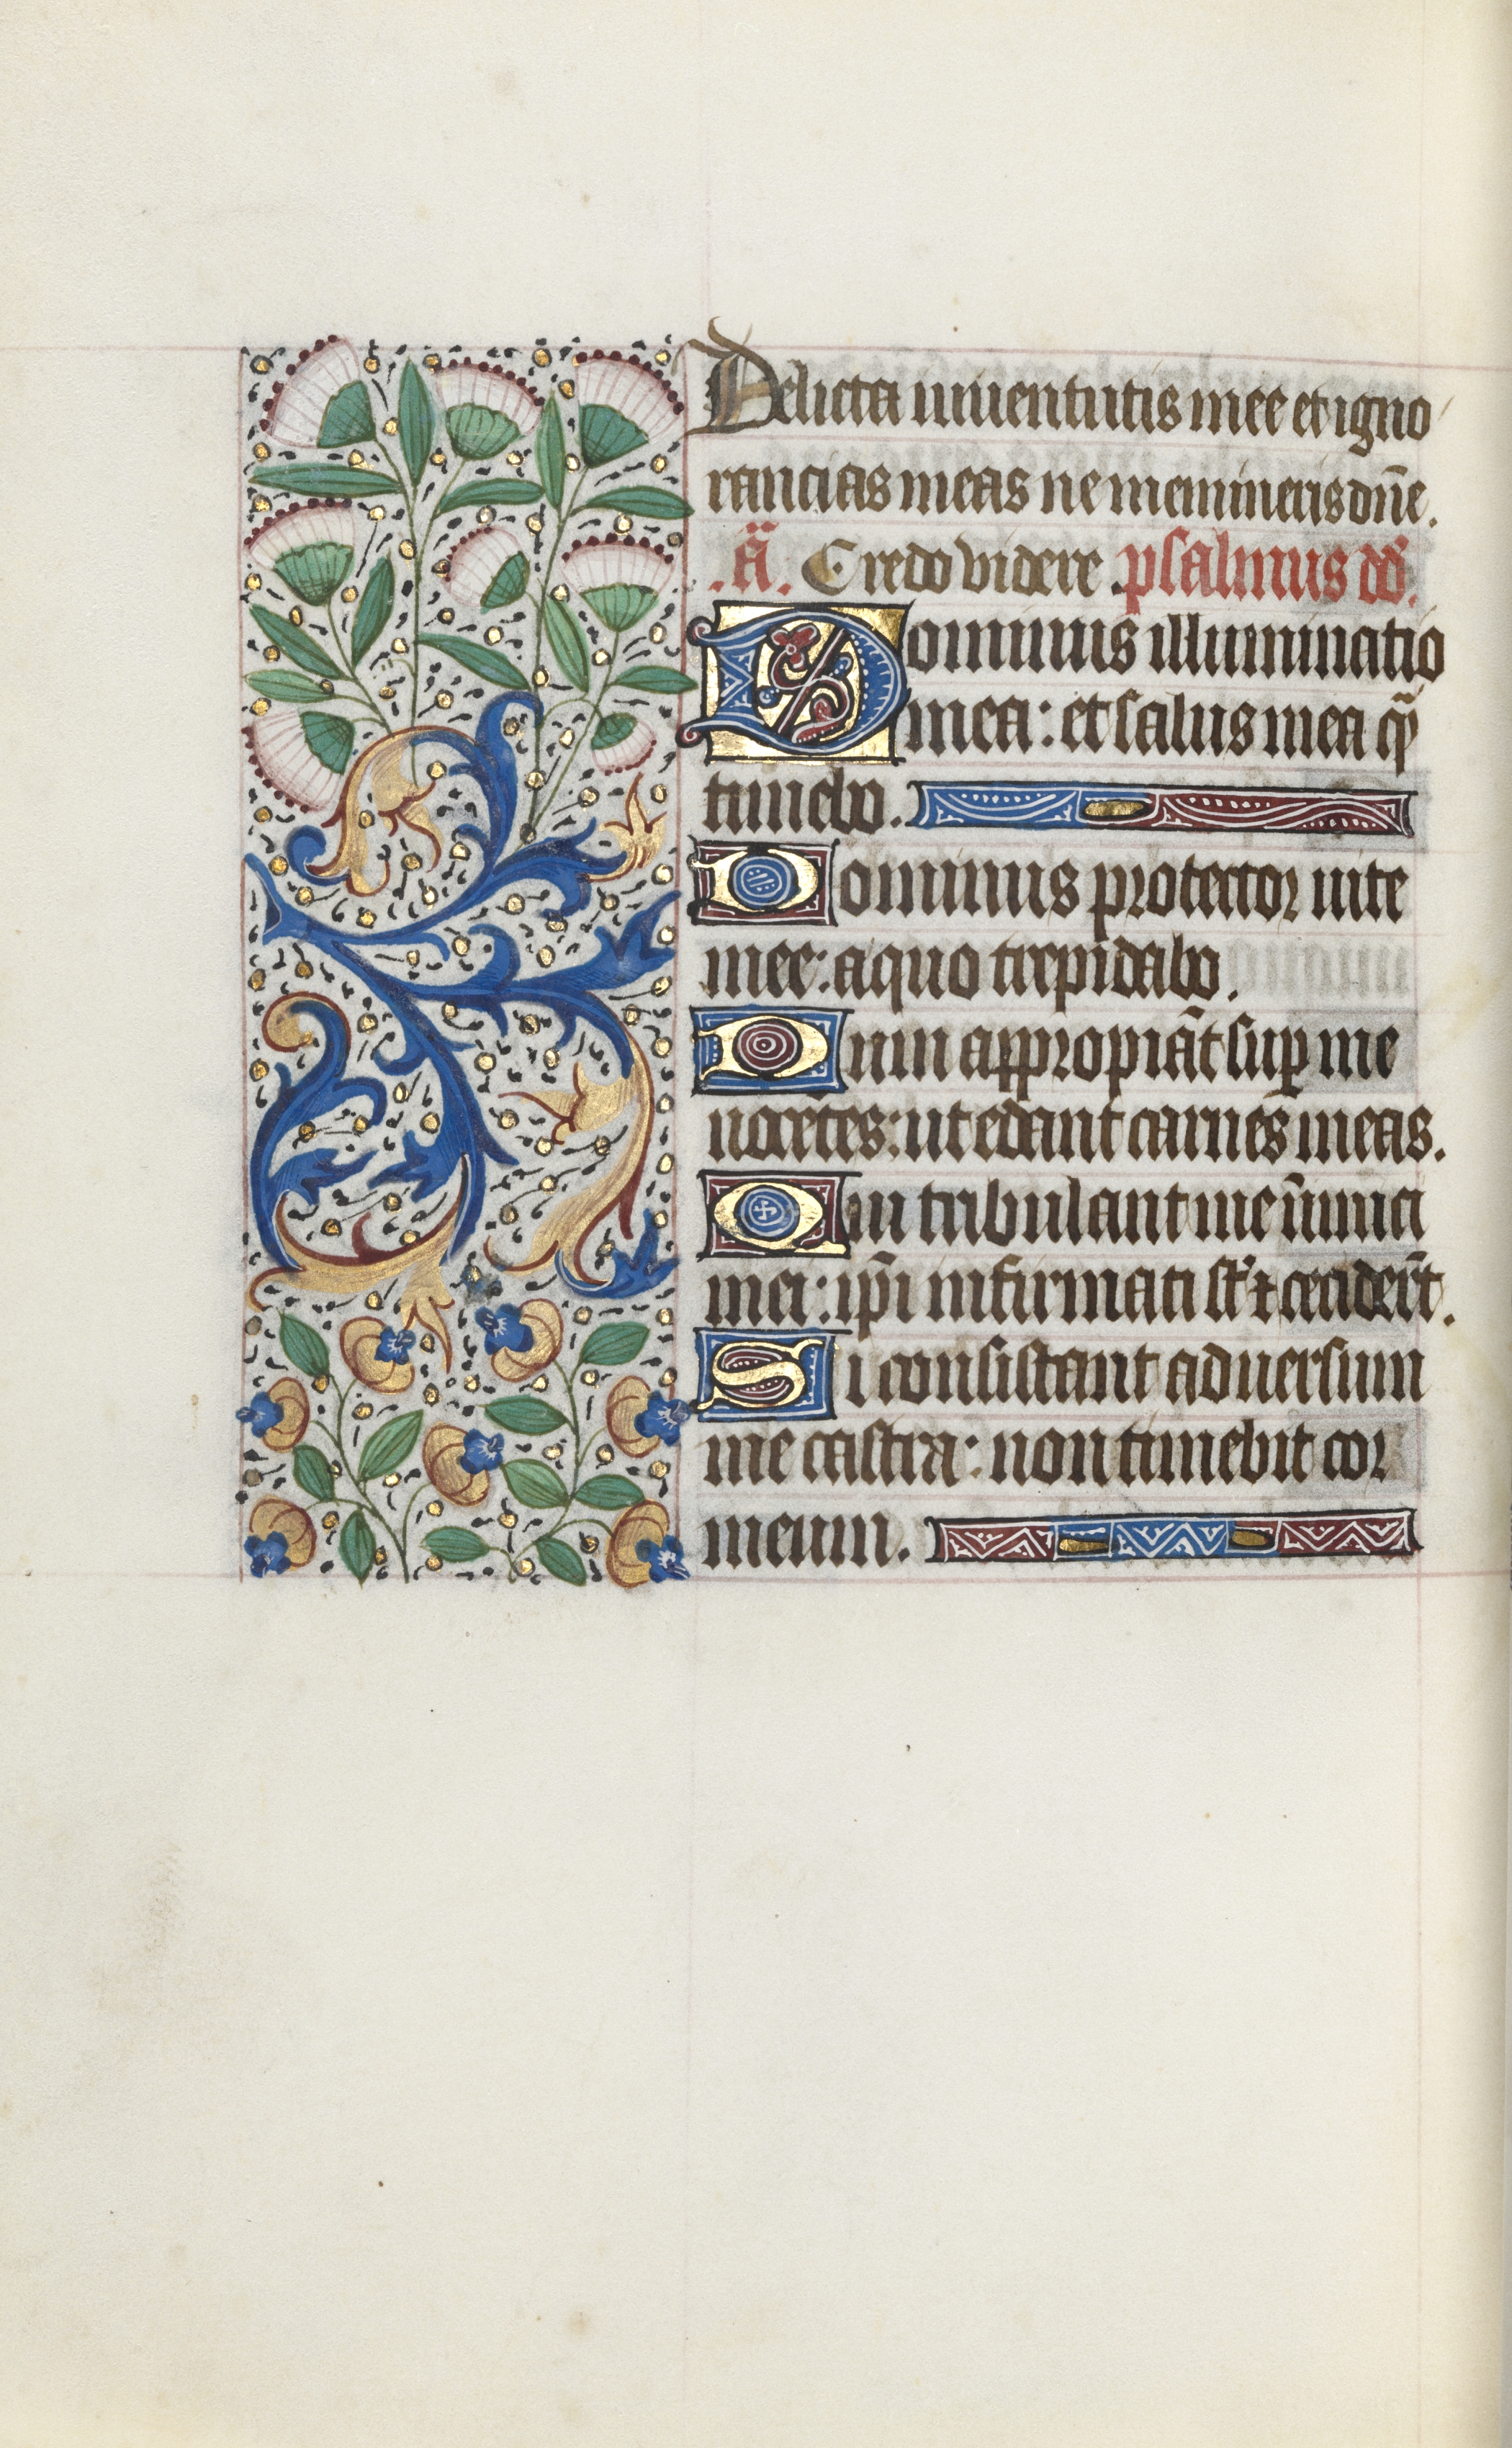 Delicta iuuentutis mee et igno
rancias meas ne memineris dñe.
.ã. Credo videre psalmus dd̃.
Dominus illuminatio
mea: et salus mea q̃
timebo.
Dominus protector uite
mee: a quo trepidabo.
Dum appropiãt sup̱ me
nocẽtes: ut edant carnes meas.
Qui tribulant me inimici
mei: ip̃i infirmati st̃ ⁊ cecider̃t.
Si consistant aduersum
me castra: non timebit cor
meum.